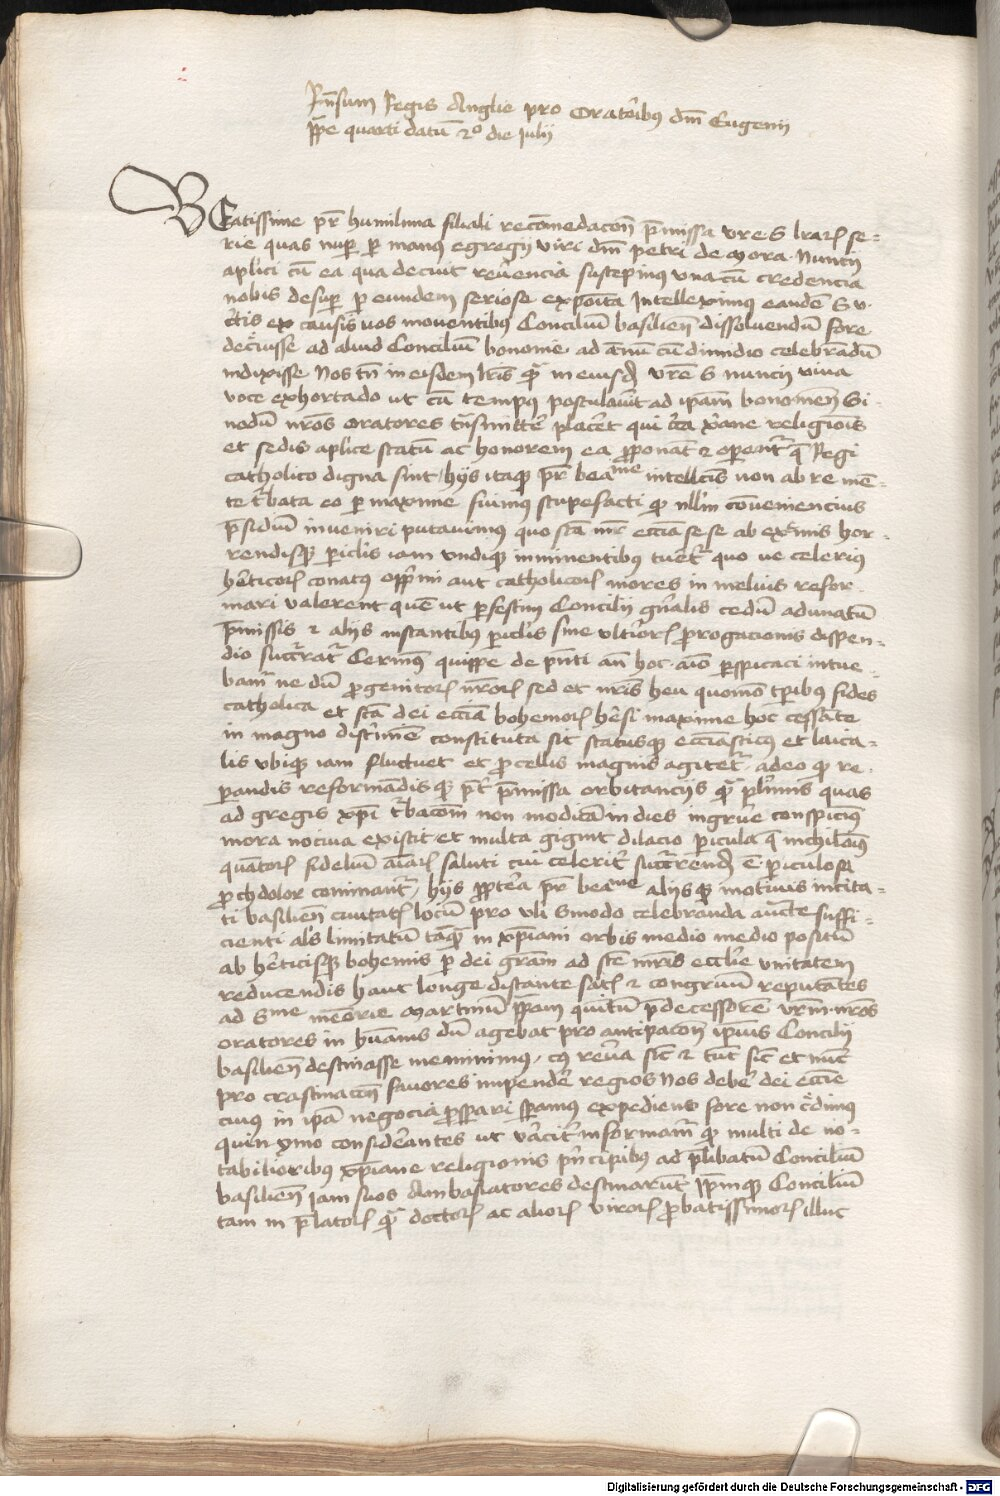 Rn̄sum Regis Anglie pro Oratoribus dm̄ Eugenij
pp̄e quarti datū 2º die Julij
BEatissime pr̄ humilima filiali recōmēdacōn p̄missa vr̄e S lrar̄ se-
rie quas nup̄ p̄ manus egregij viri dm̄ petri de Mora Nuncij
aplici cū ea qua decuit reūencia suscepimus vna cū credencia
nobis desup̄ p̄ eundem seriose expoīta Intelleximus eandē S v
c̄tis ex causis vos moventibus Conciliū basilien̄ dissolvendū fore
decr̄iusse ad aliud Conciliū bononie ad annū cū dimidio celebrādū
indixisse Nos tn̄ in eisdem lris qr̄ in eiusd̄ vr̄e S nuncij viua
voce exhortādo ut cū tempus postulauit ad ip̄am bononien̄ Si-
nodū nr̄os oratores tn̄smitte placet qui c̄ca xp̄ane religionis
et sedis aplice statū ac honorem ea p̄ponāt & operent̄ q̄ Regi
catholico digna sint / hijs itaq̄ pr̄ bea^me intellc̄is non ab re mē-
te t̄bata eo p̄ maxime fuimus stupefacti q̄ nll̄m cōueniencius
p̄sidiū inveniri putauimus quo sc̄a mr̄ ecc̄ia se se ab ext̄mis hor-
rendisq̄ piclis iam vndiq̄ imminentibus tuet̄ quo ve celerius
hēticor̄ conatus opp̄mi aut catholicor̄ mores in melius refor-
mari valerent quē ut p̄festim Concilij gn̄alis cedū adunatū
p̄missis & alijs instantibus piclis sine vlt̄ior̄ p̄rogacionis dispen-
dio succ̄rat̄ Cernim̄ quippe de pn̄ti an̄ hoc aīo p̄spicaci intue-
bam̄ ne dū p̄genitor̄ nr̄or̄ sed et nr̄is heu quomō tp̄ibus fides
catholica et sc̄a dei ecc̄ia bohemor̄ hēsi maxime hoc cessāte
in magno discrimē constituta sit statusq̄ ecc̄iasticus et laica-
lis vbiq̄ iam fluctuet et p̄cellis magnis agitet̄ adeo q̄ re-
p̄andis reformādisq̄ pt̄ p̄missa orbitancijs qr̄ pl̄imis quas
ad gregis xp̄i t̄bacōm non modicā in dies ingrūe conspicim̄
mora nociua existit et multa gignit dilacio picula q̄ inchilom̄
quātor̄ fideliū aīar̄ saluti cui celerit̄ succ̄rend̄ ē piculosa
p̄ch dolor cominant̄ / hijs p̄pt̄ea pr̄ bea^me alijsq̄ motivis incita-
ti basilien̄ civitat̄ locū pro vli Sinodo celebranda aūcte suffi-
cienti als̄ limitatū tāq̄ in xp̄iani orbis medio medio positū
ab hēticisq̄ bohemis p̄ dei grām ad sc̄e mr̄is ecclie vnitatem
reducendis haut longe distante sat̄ & congruū reputātes
ad S^me memorie Martinū pp̄am quintū p̄decessorē vr̄m nr̄os
oratores in hūanis dū agebat pro anticipacōn ip̄ius Concilij
basilien̄ destinasse meminimus / cq̄ reūa sic̄ & tūc sic̄ et nūc
pro crastinacōn favores impendē regios Nos debē dei ecc̄ie
cuius in ip̄a negocia p̄sp̄ari sp̄amus expediens fore non c̄dimus
quin ymo considerantes ut vācit̄ informam̄ q̄ multi de no-
tabilioribus xp̄iane religionis pn̄cipibus ad p̄libatū Conciliū
basilien̄ Jam suos Ambasiatores destinarūt Ip̄mq̄ Conciliū
tam in p̄lator̄ qr̄ doctor̄ ac alior̄ viror̄ p̄batissimor̄ illuc
Digitalisierung gefördert durch die Deutsche Forschungsgemeinschaft - DFG